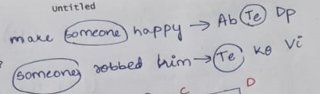 Untitled
make someone happy → Ab Te Dp
someone robbed him → Te Ko Vi
C D